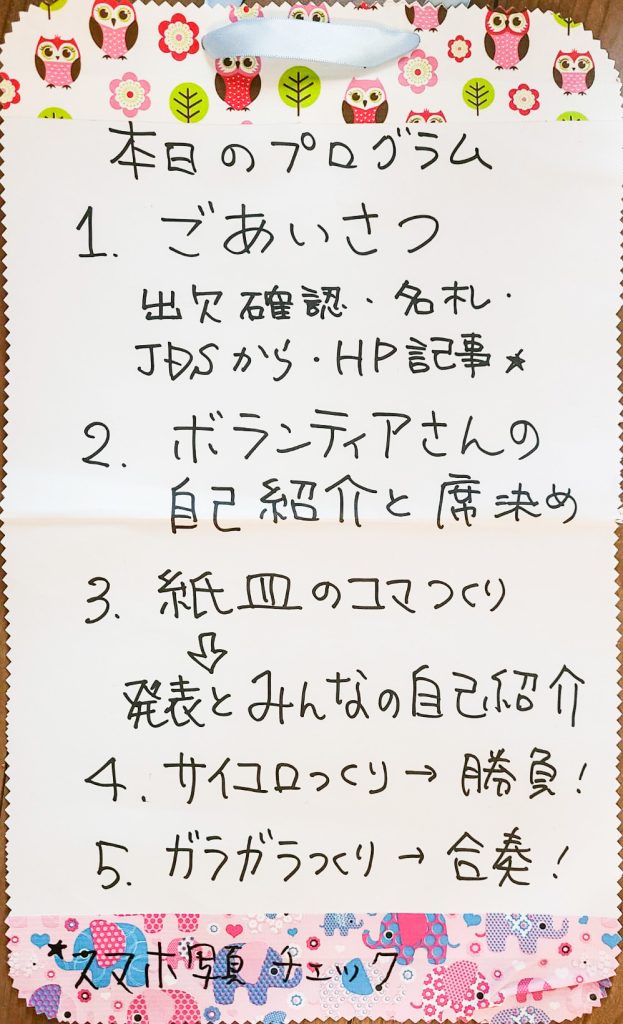 本日のプログラム
1. ごあいさつ
出欠確認・名札・
JDSから・HP記事★
2. ボランティアさんの
自己紹介と席決め
3. 紙皿のコマつくり
⇩
発表とみんなの自己紹介
4. サイコロつくり→勝負!
5. ガラガラつくり→合奏!
★スマホ写真チェック